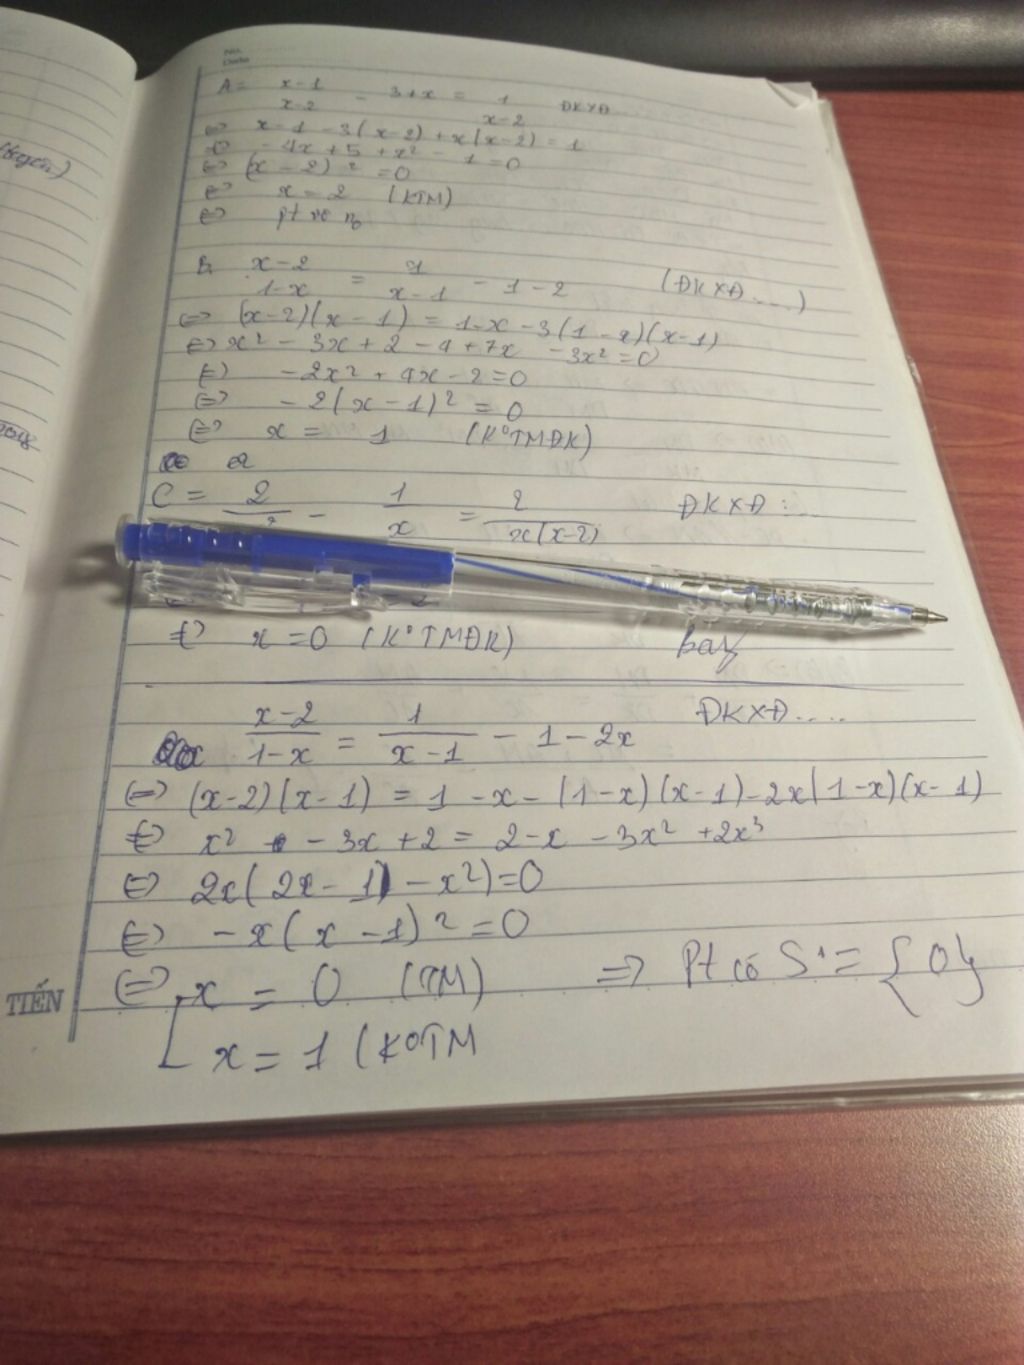 No.
Date
A = x-1/x-2 - 3+x = 1/x-2 ĐKXĐ...
<=> x-1-3(x-2)+x(x-2)=1
<=> -4x+5+x² -1=0
<=> (x-2)²=0
<=> x=2 (KTM)
<=> pt vô n₀
B, x-2/1-x = 1/x-1 - 1-2 (ĐKXĐ....)
<=> (x-2)(x-1) = 1-x-3(1-x)(x-1)
<=> x²-3x+2-4+7x -3x²=0
<=> -2x²+4x-2=0
<=> -2(x-1)²=0
<=> x = 1 (K°TMĐK)
C = 2/ - 1/x = 2/x(x-2) ĐKXĐ:..
<=> x=0 (K°TMĐK)
x-2/1-x = 1/x-1 - 1-2x ĐKXĐ....
<=> (x-2)(x-1) = 1-x-(1-x)(x-1)-2x(1-x)(x-1)
<=> x² -3x+2 = 2-x-3x²+2x³
<=> 2x(2x-1)-x²)=0
<=> -x(x-1)²=0
<=> [x = 0 (TM) => Pt có S = {0}
x = 1 (K°TM
TIẾN